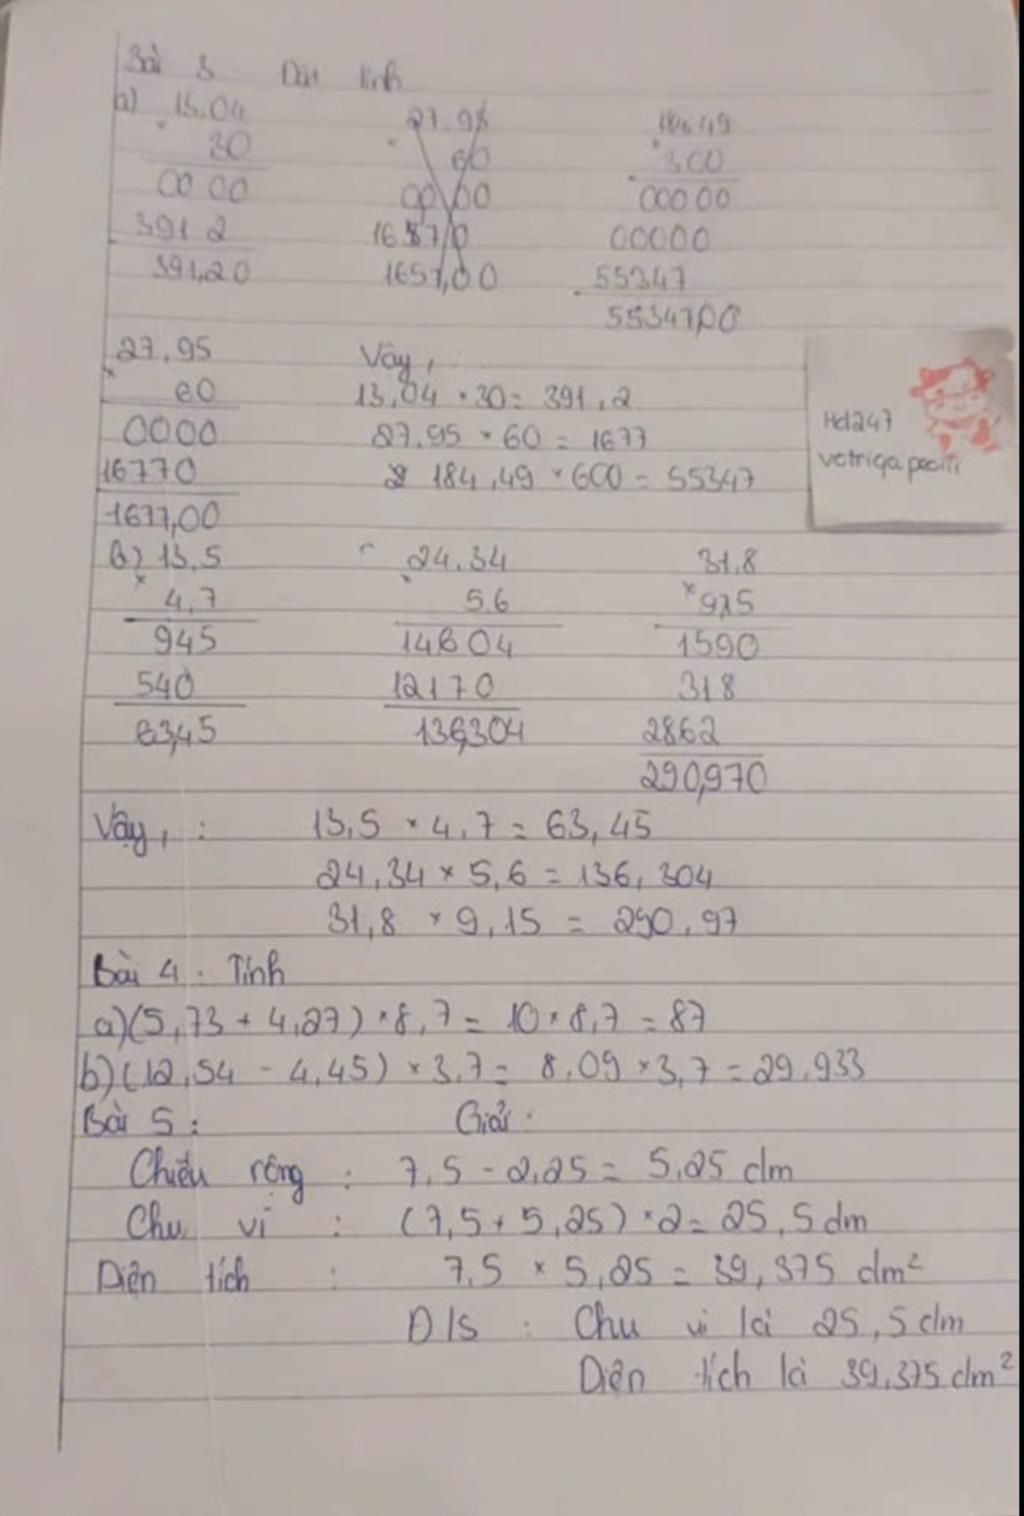 Bài 3 Đặt tính
a) 13,04 27,95 184,49
× 30 × 60 × 300
00 00 00 00 000 00
391 2 16570 000 00
391,20 1657,00 55347
55347,00
27,95 Vậy, :
× 60 13,04 × 30 = 391,2
0000 27,95 × 60 = 1677
16770 184,49 × 600 = 55347
1677,00
b) 13,5 24,34 31,8
× 4,7 × 5,6 × 9,15
945 14604 1590
540 12170 318
63,45 136,304 2862
290,970
Vậy, : 13,5 × 4,7 = 63,45
24,34 × 5,6 = 136,304
31,8 × 9,15 = 290,97
Bài 4 : Tính
a) (5,73 + 4,27) × 8,7 = 10 × 8,7 = 87
b) (12,54 - 4,45) × 3,7 = 8,09 × 3,7 = 29,933
Bài 5 : Giải :
Chiều rộng : 7,5 - 2,25 = 5,25 dm
Chu vi : (7,5 + 5,25) × 2 = 25,5 dm
Diện tích : 7,5 × 5,25 = 39,375 dm²
Đ/S : Chu vi là 25,5 dm
Diện tích là 39,375 dm²
Hd247